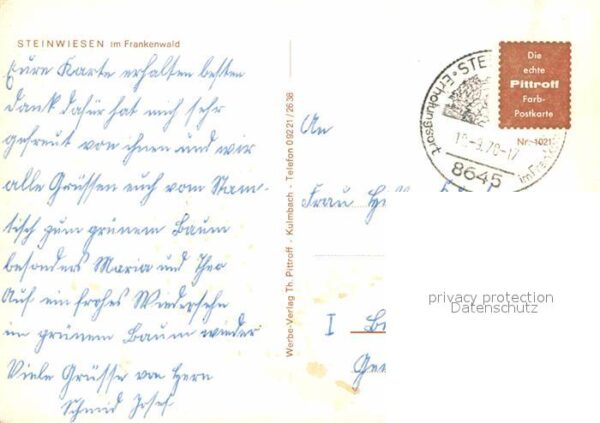 STEINWIESEN im Frankenwald
Eure Karte erhalten besten
Dank dafür hat mich sehr
gefreut von ihnen und wir
alle Grüssen euch vom Stam-
tisch zum grünem Baum
besonders Maria und Theo
Auf ein frohes Wiedersehn
im grünem Baum wieder
Viele Grüsse von Herrn
Schmid Josef
Werbe-Verlag Th. Pittroff - Kulmbach - Telefon 09221/2638
An
Frau
I
Erholungsort · STE
-9.70-17
8645
im Fran
Die
echte
Pittroff
Farb-
Postkarte
Nr. 1021
privacy protection
Datenschutz